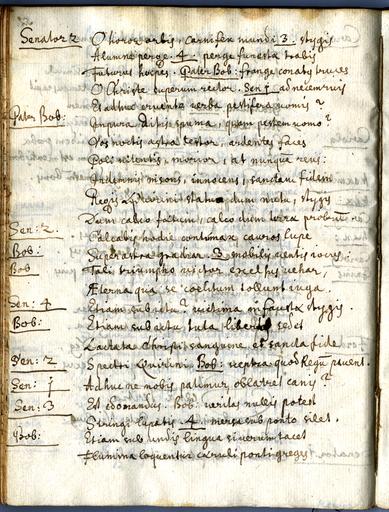 Senator 2 O livor orbis, carnifex mundi 3. stygis
Alumne perge. 4. perge funesta trabis
Futurus hæres. Pater Bob: frange conatus truces
O Christe superum rector. Sen 1
Et adhuc cruente verba pestifera vomis?
Pater Bob: Impura Ditis spuma, quam pestem vomo?
Vos noctis astra testor, ardentes faces
Poli nitentis, morior, at nunquam reus:
Indemnis insons, innocens, sanctam fidem
Regis statum dum metu, stygis
Dum calco calco dum terræ probrum
Sen: 2. Calcabis hodie contumax lupe
Bob: Superastra gradiar. 3 mobilis ventis
Bob Tali triumpho victor excelsus vehar,
Æterna qua se cœlitum tollunt iuga.
Sen: 4 Etiam sub ictu? victima infausta stygis
Bob: Etiam sub ictu tuta libertas sedet
Lactata Christi sanguine, et sancta fide
Sen: 2 Spectri Quirini Bob: sceptra quod Regum pavent.
Sen: 1 Adhuc ne nobis patimur oblatret canis?
Sen: 3 Est edomandus. Bob: veritas nullis potest
Stringi lupatis. 4. mersa sub ponto silet.
Bob: Etiam sub undis lingua si verum tacet
Flumina loquentur cæruli ponti greges